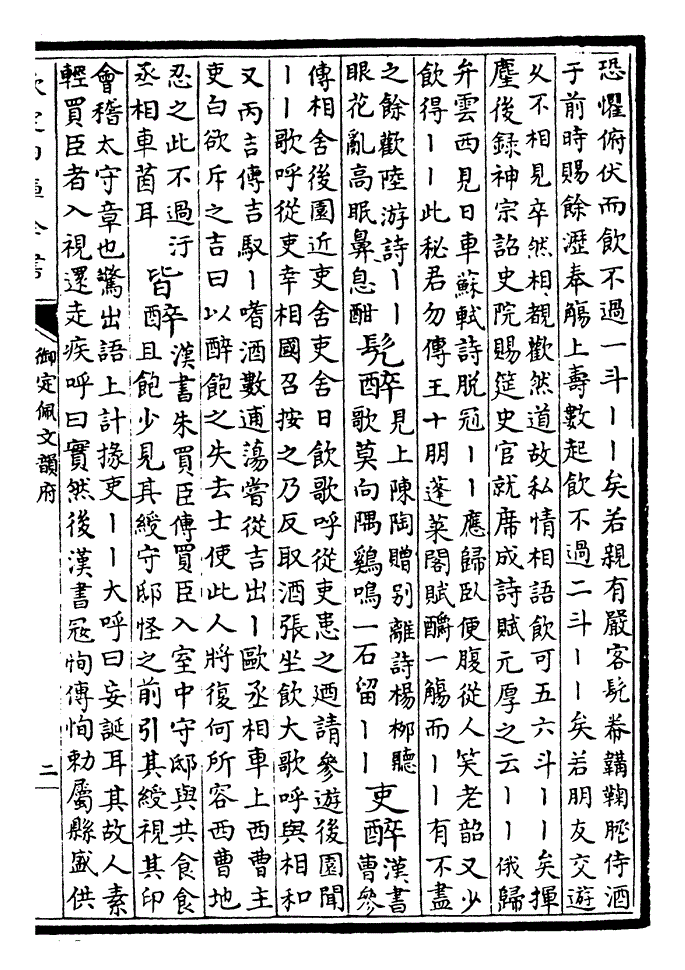 恐懼俯伏而飲不過一斗丨丨矣若親有嚴客髡帣韝鞠䠆侍酒
于前時賜餘瀝奉觴上壽數起飲不過二斗丨丨矣若朋友交遊
久不相見卒然相覩歡然道故私情相語飲可五六斗丨丨矣揮
麈後録神宗詔史院賜筵史官就席成詩賦元厚之云丨丨俄歸
弁雲西見日車蘇軾詩脱冠丨丨應歸卧便腹從人笑老韶又少
飲得丨丨此秘君勿傳王十朋蓬莱閣賦釂一觴而丨丨有不盡
之餘歡陸游詩丨丨
眼花亂高眠鼻息酣
髡醉
見上陳陶贈别離詩楊栁聽
歌莫向隅鷄鳴一石留丨丨
吏醉
漢書
曹參
傳相舍後園近吏舍吏舍日飲歌呼從吏患之廼請參遊後園聞
丨丨歌呼從吏幸相國召按之乃反取酒張坐飲大歌呼與相和
又丙吉傳吉馭丨嗜酒數逋蕩嘗從吉出丨歐丞相車上西曹主
吏白欲斥之吉曰以醉飽之失去士使此人將復何所容西曹地
忍之此不過汙
丞相車茵耳
皆醉
漢書朱買臣傳買臣入室中守邸與共食食
且飽少見其綬守邸怪之前引其綬視其印
會稽太守章也驚出語上計掾吏丨丨大呼曰妄誕耳其故人素
輕買臣者入視還走疾呼曰實然後漢書冦恂傳恂勅屬縣盛供
欽定四庫全書
御定佩文韻府
二